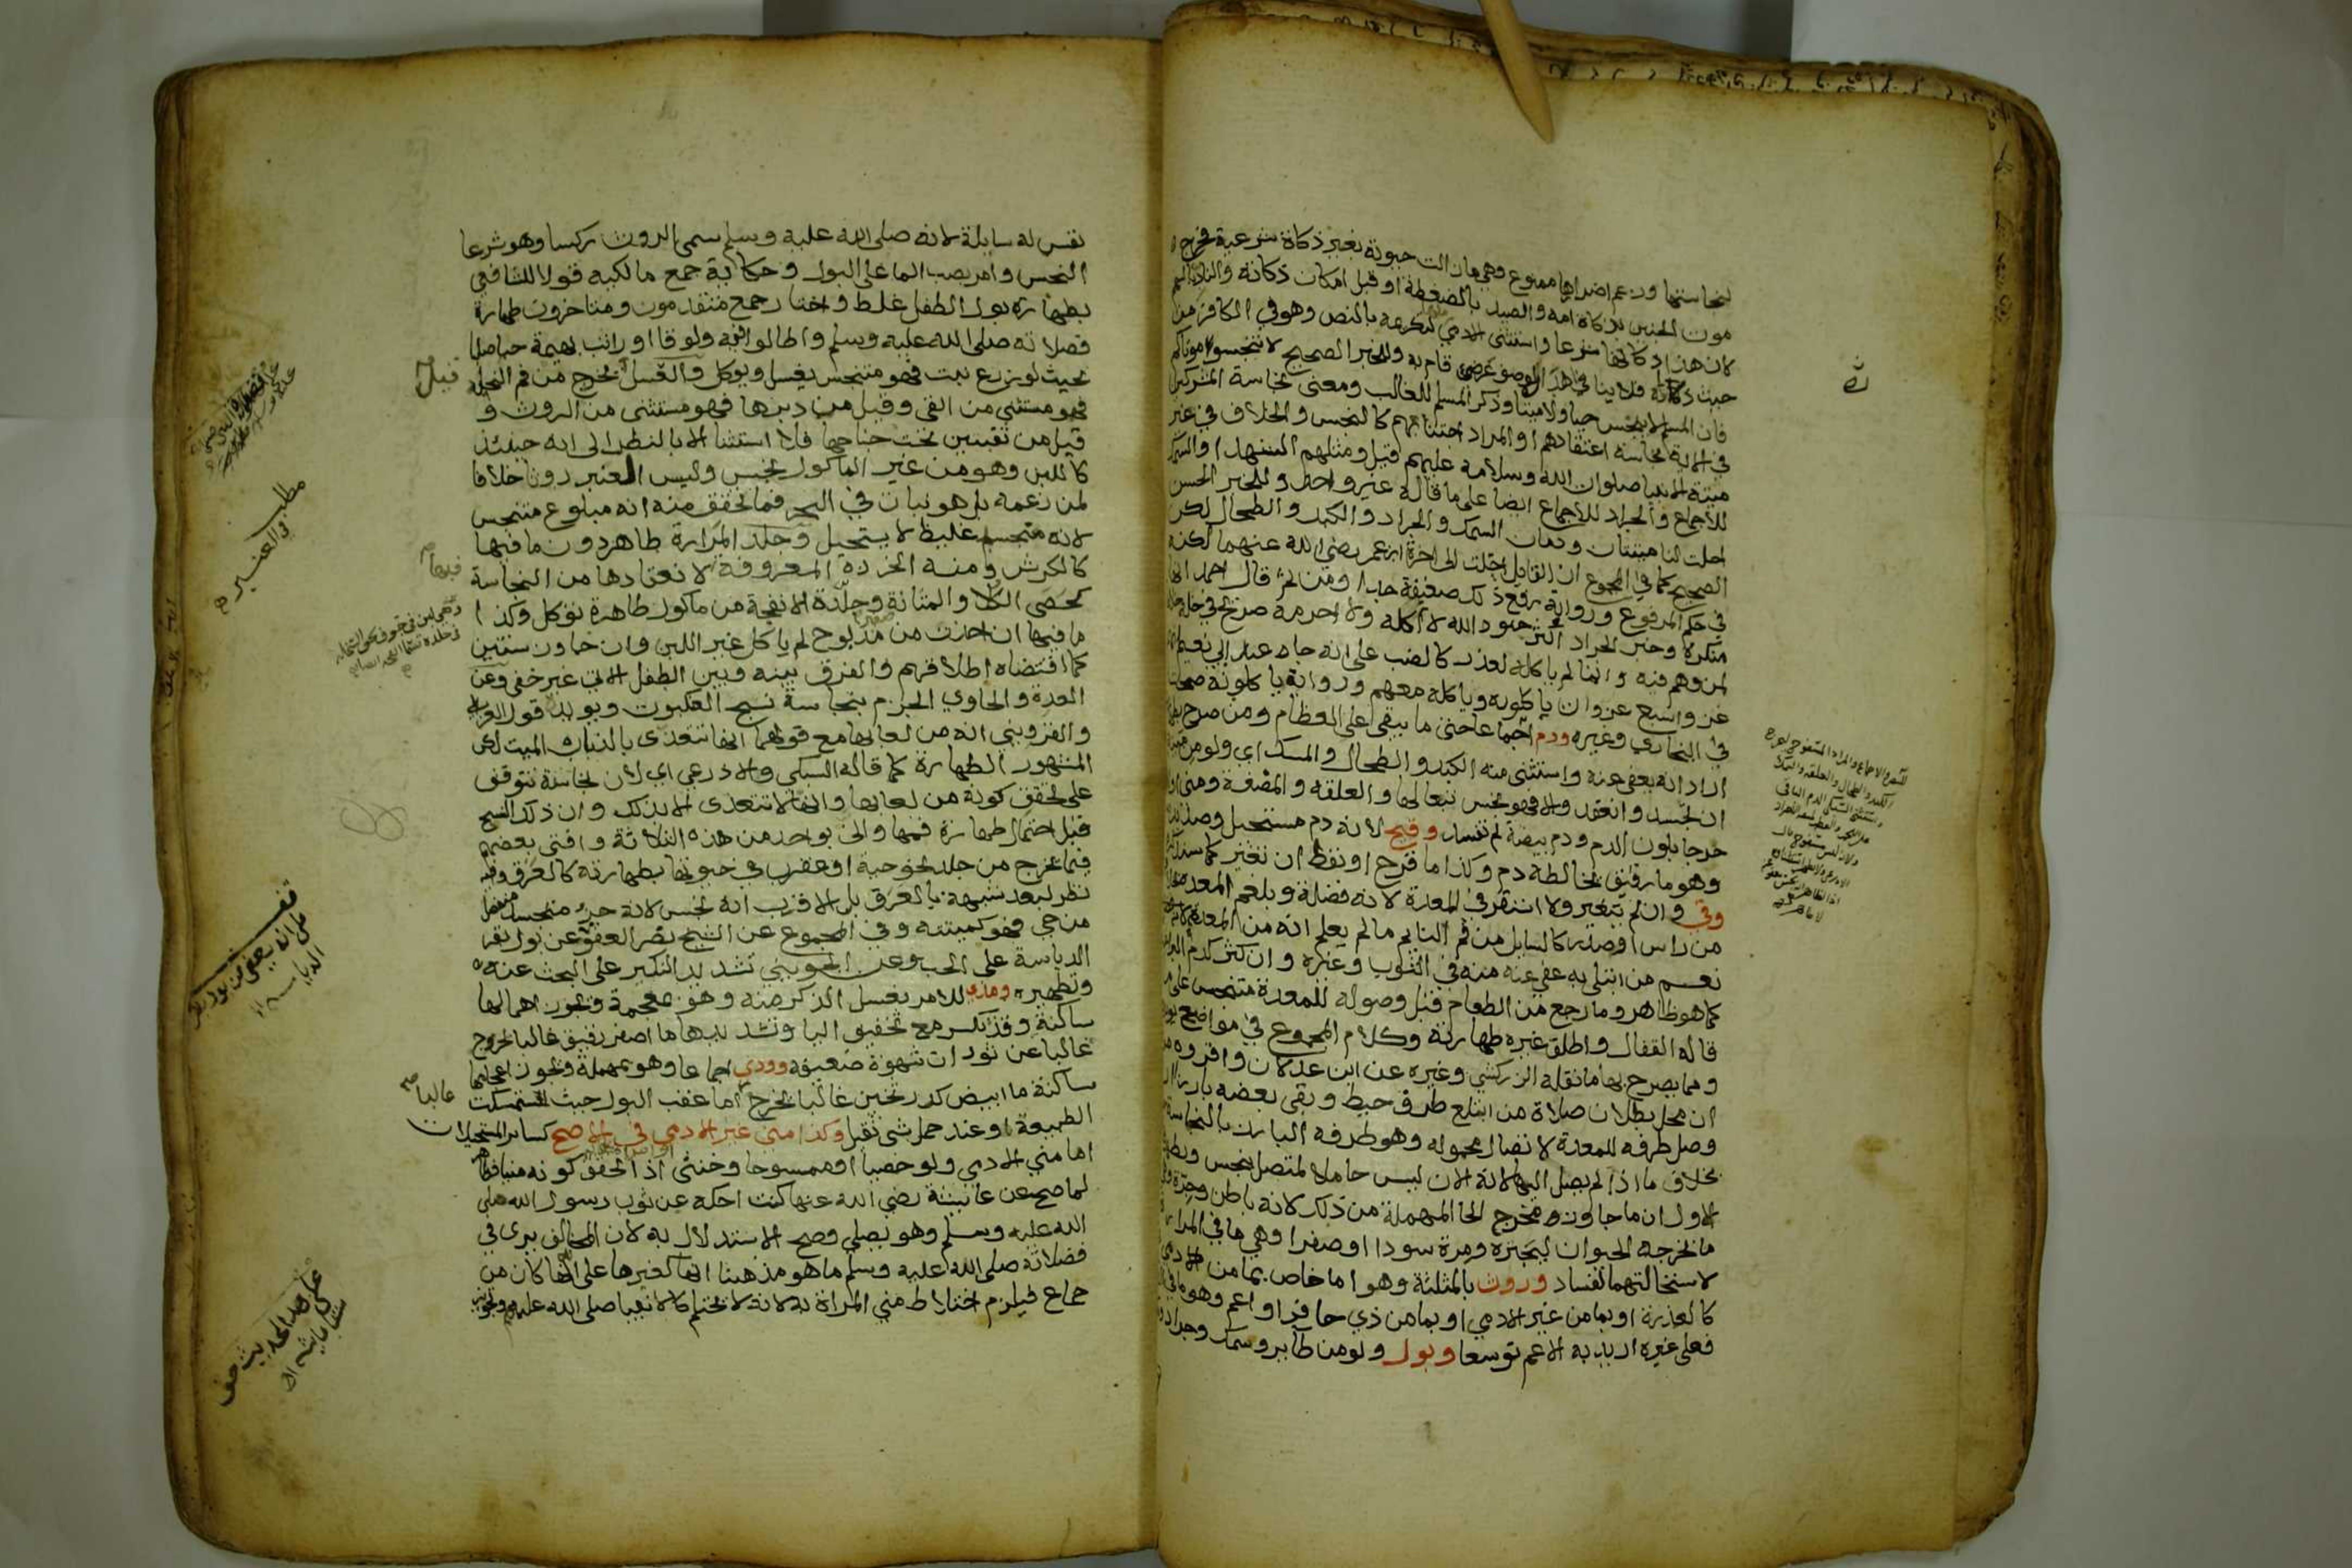 لنجاستها وزعم اضرارها ممنوع وهي مازالت حيوته بغير ذكاة شرعية فخرج
موت الجنين بذكاة امه والصيد بالضغطة او قبل امكان ذكاته والناد بالسهم
لان هذا ذكاتها شرعا واستثنى الادمي لتكريمه بالنص وهو في الكافر من
حيث ذاته فلا ينافي هذا وصف عرضي قام به وللخبر الصحيح لا تنجسوا موتاكم
فان المسلم لا ينجس حيا ولا ميتا وذكر المسلم للغالب ومعنى نجاسة المشركين
في الاية نجاسة اعتقادهم او المراد اجتنابهم كالنجس والخلاف في غير
ميتة الانبيا صلوات الله وسلامه عليهم قيل ومثلهم الشهدا والسمك
للاجماع والجراد للاجماع ايضا على ما قاله غير واحد وللخبر الحسن
احلت لنا ميتتان ودمان السمك والجراد والكبد والطحال لكن
الصحيح كما في المجموع ان القايل احلت الى اخره ابن عمر رضي الله عنهما لكنه
في حكم المرفوع ورواية رفع ذلك ضعيفة جدا ومن ثم قال احمد انها
منكرة وخبر الجراد اكثر جنود الله لا اكله ولا احرمه صريح في حله خلافا
لمن وهم فيه وانما لم ياكله لعذر كالضب على انه جاء عند ابي نعيم
عن واسبع غزوات ياكلونه وياكله معهم ورواية ياكلونه صحت
في البخاري وغيره ودم اجماعا حتى ما يبقى على العظام ومن صرح بطهارته
اراد انه يعفى عنه واستثنى منه الكبد والطحال والمسك اي ولو من ميت
ان تجسد وانعقد والا فهو نجس تبعا لها والعلقه والمضغة ومني او لبن
خرجا بلون الدم ودم بيضة لم تفسد وقيح لانه دم مستحيل وصديد
وهو ما رقيق يخالطه دم وكذا ما قرح او نفط ان تغير كما سيذكره
وقي وان لم يتغير ولا استقر في المعدة لانه فضلة وبلغم المعدة بخلافه
من راس او صدر كالسايل من فم النايم ما لم يعلم انه من المعدة
نعم من ابتلي به عفي عنه منه في الثوب وغيره وان كثر كدم البراغيث
كما هو ظاهر وما رجع من الطعام قبل وصوله للمعدة متنجس على ما
قاله القفال واطلق غيره طهارته وكلام المجموع في مواضع يؤيده
ومما يصرح بها ما نقله الزركشي وغيره عن ابن عدلان واقروه من
ان محل بطلان صلاة من ابتلع طرف خيط وبقي بعضه بارزا ان
وصل طرفه للمعدة لاتصال محموله وهو طرفه البارز بالنجاسة
بخلاف ما اذا لم يصل اليها لانه الان ليس حاملا لمتصل بنجس
الاول ان ما جاوز مخرج الحا المهملة من ذلك لانه باطن وجرة
ما يخرجه الحيوان ليجتره ومرة سودا او صفرا وهي ما في المرارة
لاستحالتهما لفساد وروث بالمثلثة وهو اما خاص بما من الادمي
كالعذرة او بما من غير الادمي او بما من ذي حافر او اعم وهو ما في
فعلى غيره اريد به الاعم توسعا وبول ولو من طاير وسمك وجراد
نفس له سايلة لانه صلى الله عليه وسلم سمى الروث ركسا وهو شرعا
النجس وامر بصب الما على البول وحكاية جمع مالكيه قولا للشافعي
بطهارة بول الطفل غلط واختار جمع متقدمون ومتاخرون طهارة
فضلاته صلى الله عليه وسلم واطالوا فيه ولو قا او راثت بهيمة حبا صلبا
بحيث لو زرع نبت فهو متنجس يغسل ويوكل والعسل يخرج من فم النحل
فهو مستثنى من القي وقيل من دبرها فهو مستثنى من الروث و
قيل من ثقبين تحت جناحها فلا استثنا الا بالنظر الى انه حينئذ
كاللبن وهو من غير الماكول نجس وليس العنبر روثا خلافا
لمن زعمه بل هو نبات في البحر فما تحقق منه انه مبلوع متنجس
لانه متجسد غليظ لا يستحيل وجلد المرارة طاهر دون ما فيها
كالكرش ومنه الخرزة المعروفة لانعقادها من النجاسة
كحصى الكلا والمثانة وجلدة الانفحة من ماكول طاهرة توكل وكذا
ما فيها ان اخذت من مذبوح لم ياكل غير اللبن وان جاوز سنتين
كما اقتضاه اطلاقهم والفرق بينه وبين الطفل الاتي غير خفي وعن
العدة والحاوي الجزم بنجاسة نسج العنكبوت ويويده قول الغزالي
والقزويني انه من لعابها مع قولهما انها تتغذى بالذباب الميت لكن
المشهور الطهارة كما قاله السبكي والاذرعي اي لان نجاسته تتوقف
على تحقق كونه من لعابها وانها لا تتغذى الا بذلك وان ذلك النسج
قبل احتمال طهارة فمها واني بواحد من هذه الثلاثة وافتى بعضهم
فيما يخرج من جلد نحو حية او عقرب في حيوتها بطهارته كالعرق وفيه
نظر لبعد تشبيهه بالعرق بل الاقرب انه نجس لانه جزء متجسد منفصل
من حي فهو كميتته وفي المجموع عن الشيخ نصر العفو عن بول بقر
الدياسة على الحب وعن الجويني تشديد النكير على البحث عنه
وتطهيره ومذي للامر بغسل الذكر منه وهو بمعجمة ويجوز اهمالها
ساكنة وقد تكسر مع تخفيف اليا وتشديدها ما اصفر رقيق غالبا يخرج
غالبا عن ثوران شهوة ضعيفه وودي اجماعا وهو بمهملة ويجوز اعجامها
ساكنة ما ابيض كدر ثخين غالبا يخرج اما عقب البول حيث استمسكت
الطبيعة او عند حمل شي ثقيل وكذا مني غير الادمي في الاصح كساير المستحيلات
اما مني الادمي ولو خصيا او ممسوحا وخنثى اذا تحقق كونه منيا فطاهر
لما صح عن عايشة رضي الله عنها كنت احكه من ثوب رسول الله صلى
الله عليه وسلم وهو يصلي وصح الاستدلال به لان المخالف يرى في
فضلاته صلى الله عليه وسلم ما هو مذهبنا انها كغيرها على انها كان من
جماع فيلزم اختلاط مني المراة به لانه لا يحتلم كالانبيا صلى الله عليهم وسلم
قيل
مطلب
والعنبر
فيها
قف
على انه يعفى عن بول بقر
الدياسة
غالبا
على هذا الحديث حق